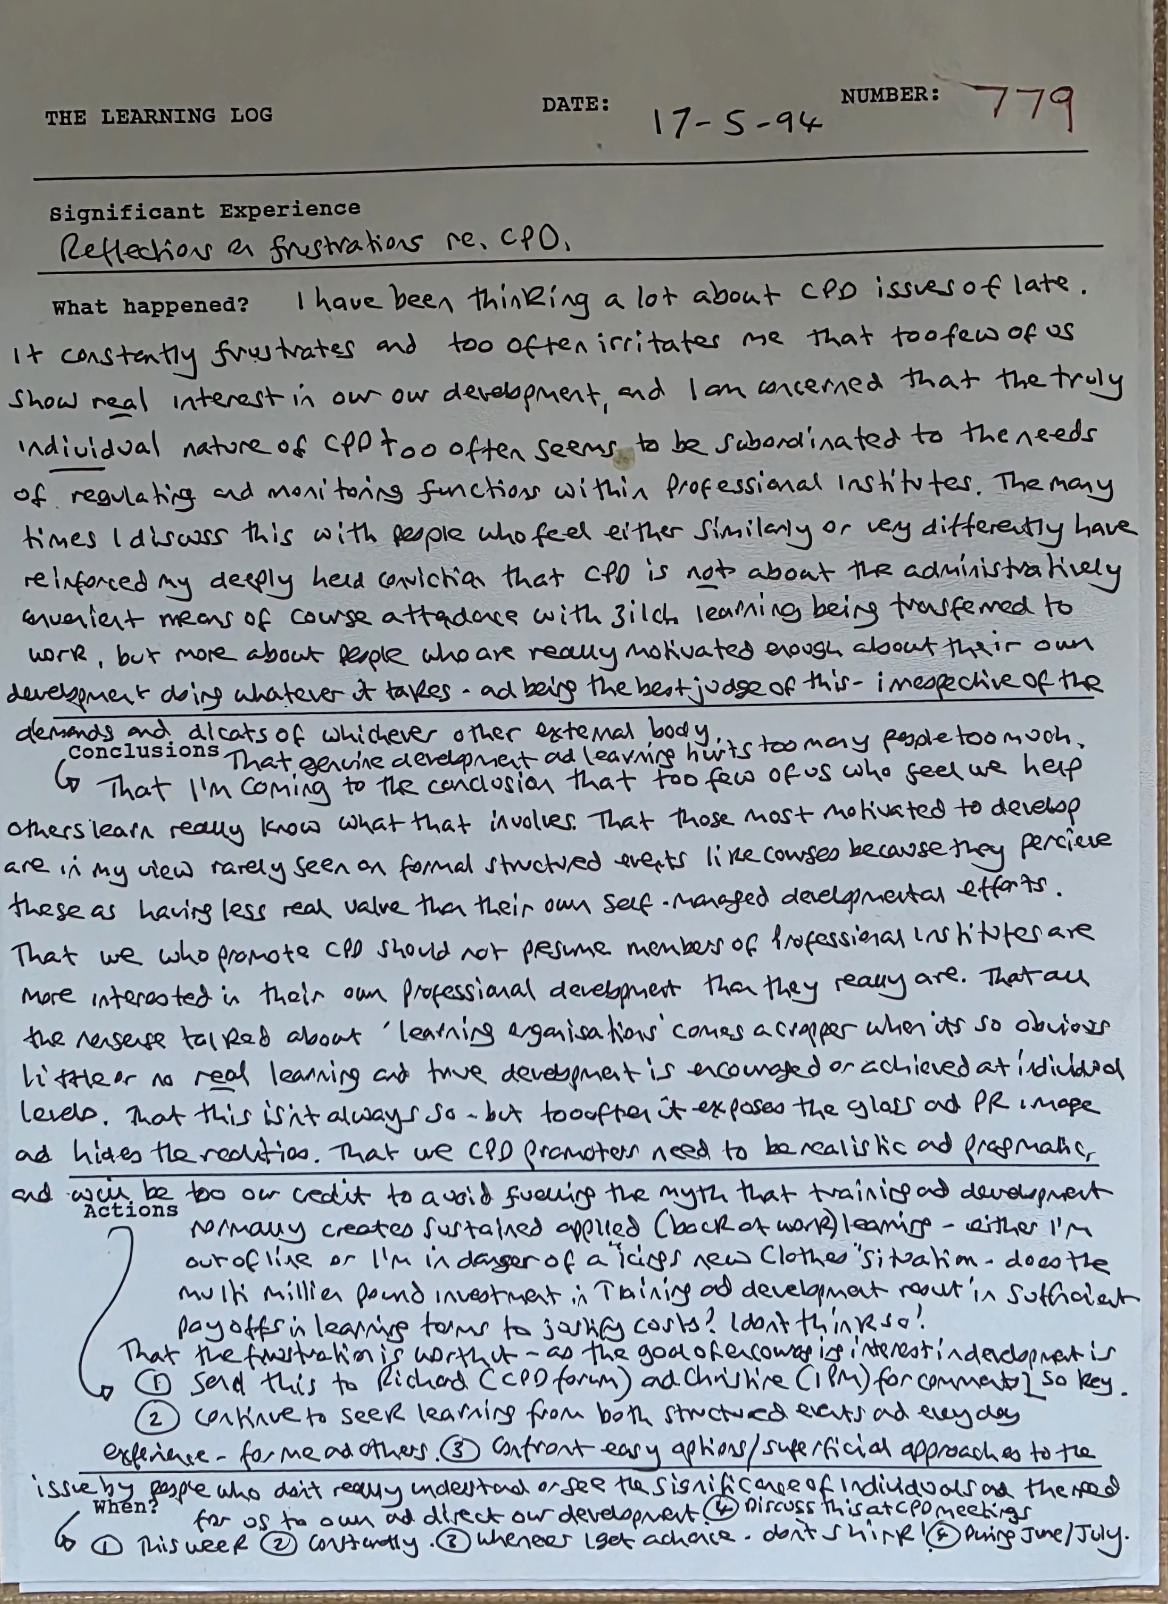 THE LEARNING LOG DATE: 17-5-94 NUMBER: 779
Significant Experience
Reflections on frustrations re. CPD.
What happened? I have been thinking a lot about CPD issues of late.
It constantly frustrates and too often irritates me that too few of us
show real interest in our our development, and I am concerned that the truly
individual nature of CPD too often seems to be subordinated to the needs
of regulating and monitoring functions within Professional Institutes. The many
times I discuss this with people who feel either similarly or very differently have
reinforced my deeply held conviction that CPD is not about the administratively
convenient means of course attendance with zilch learning being transferred to
work, but more about people who are really motivated enough about their own
development doing whatever it takes - and being the best judge of this - irrespective of the
demands and dicats of whichever other external body.
Conclusions That genuine development and learning hurts too many people too much.
That I'm coming to the conclusion that too few of us who feel we help
others learn really know what that involves. That those most motivated to develop
are in my view rarely seen on formal structured events like courses because they percieve
these as having less real value than their own self-managed developmental efforts.
That we who promote CPD should not presume members of Professional Institutes are
more interested in their own professional development than they really are. That all
the nonsense talked about 'learning organisations' comes a cropper when its so obvious
little or no real learning and true development is encouraged or achieved at individual
levels. That this isn't always so - but too often it exposes the gloss and PR image
and hides the realities. That we CPD promoters need to be realistic and pragmatic,
and will be too our credit to avoid fuelling the myth that training and development
Actions normally creates sustained applied (back at work) learning - either I'm
out of line or I'm in danger of a "kings new clothes" situation - does the
multi million pound investment in Training and development result in sufficient
pay offs in learning terms to justify costs? I don't think so!
That the frustration is worth it - as the goal of encouraging interest in development is
① Send this to Richard (CPD forum) and Christine (IPM) for comments] so key.
② Continue to seek learning from both structured events and everyday
experience - for me and others. ③ Confront easy options/superficial approaches to the
issue by people who don't really understand or see the significance of Individuals and the need
When? for us to own and direct our development. ④ Discuss this at CPD meetings
① This week ② Constantly. ③ Whenever I get a chance - don't shirk! ④ During June/July.